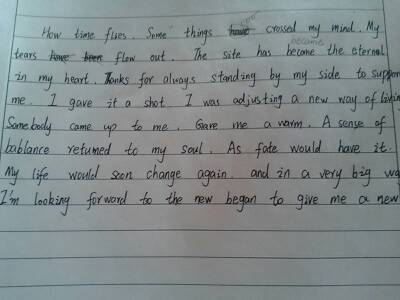 How time flies. Some things have crossed my mind. My
became
tears have been flow out. The site has become the eternal
in my heart. Thanks for always standing by my side to suppor
me. I gave it a shot. I was adjusting a new way of living
Somebody came up to me. Gave me a warm. A sense of
bablance returned to my soul. As fate would have it.
My life would soon change again. and in a very big wa
I'm looking forward to the new began to give me a new